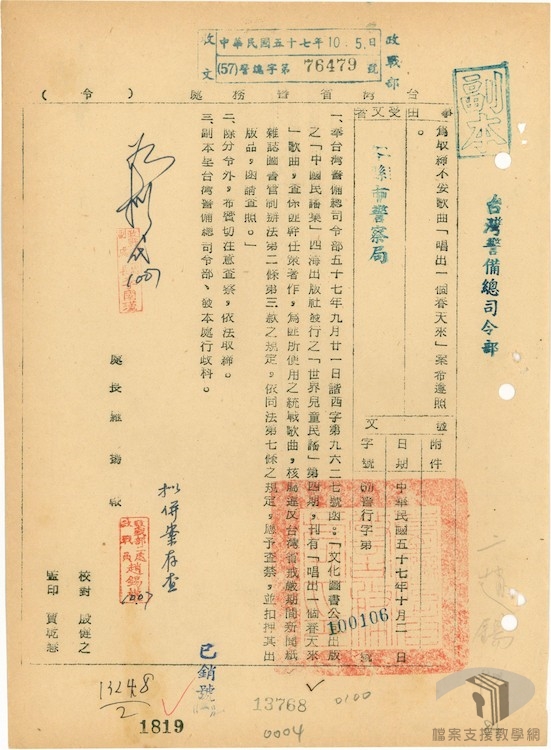 收文
中華民國五十七年10.5.日
(57)督總字第76479號
政戰部
台灣省警務處(令)
副本
台灣警備總司令部
受文者
縣市警察局
事由
為取締不妥歌曲「唱出一個春天來」案布遵照。
附件
日期 中華民國五十七年十月二日
字號 (57)警行字第100106號
一、奉台灣警備總司令部五十七年九月廿一日諧西字第九六二七號函:「文化圖書公司出版
之「中國民謠集」四海出版社發行之「世界兒童民謠」第四期,刊有「唱出一個春天來
」歌曲,查係匪幹任策著作,為匪所使用之統戰歌曲,核屬違反台灣省戒嚴期間新聞紙
雜誌圖書管制辦法第二條第三款之規定,依同法第七條之規定,應予查禁,並扣押其出
版品,函請查照。」
二、除分令外,布密切注意查察,依法取締。
三、副本呈台灣省警備總司令部、發本處行政科。
處長羅揚
擬併案存查
1007
校對
監印
已銷號
13248
2
1819
13768
0100
0004
檔案支援教學網